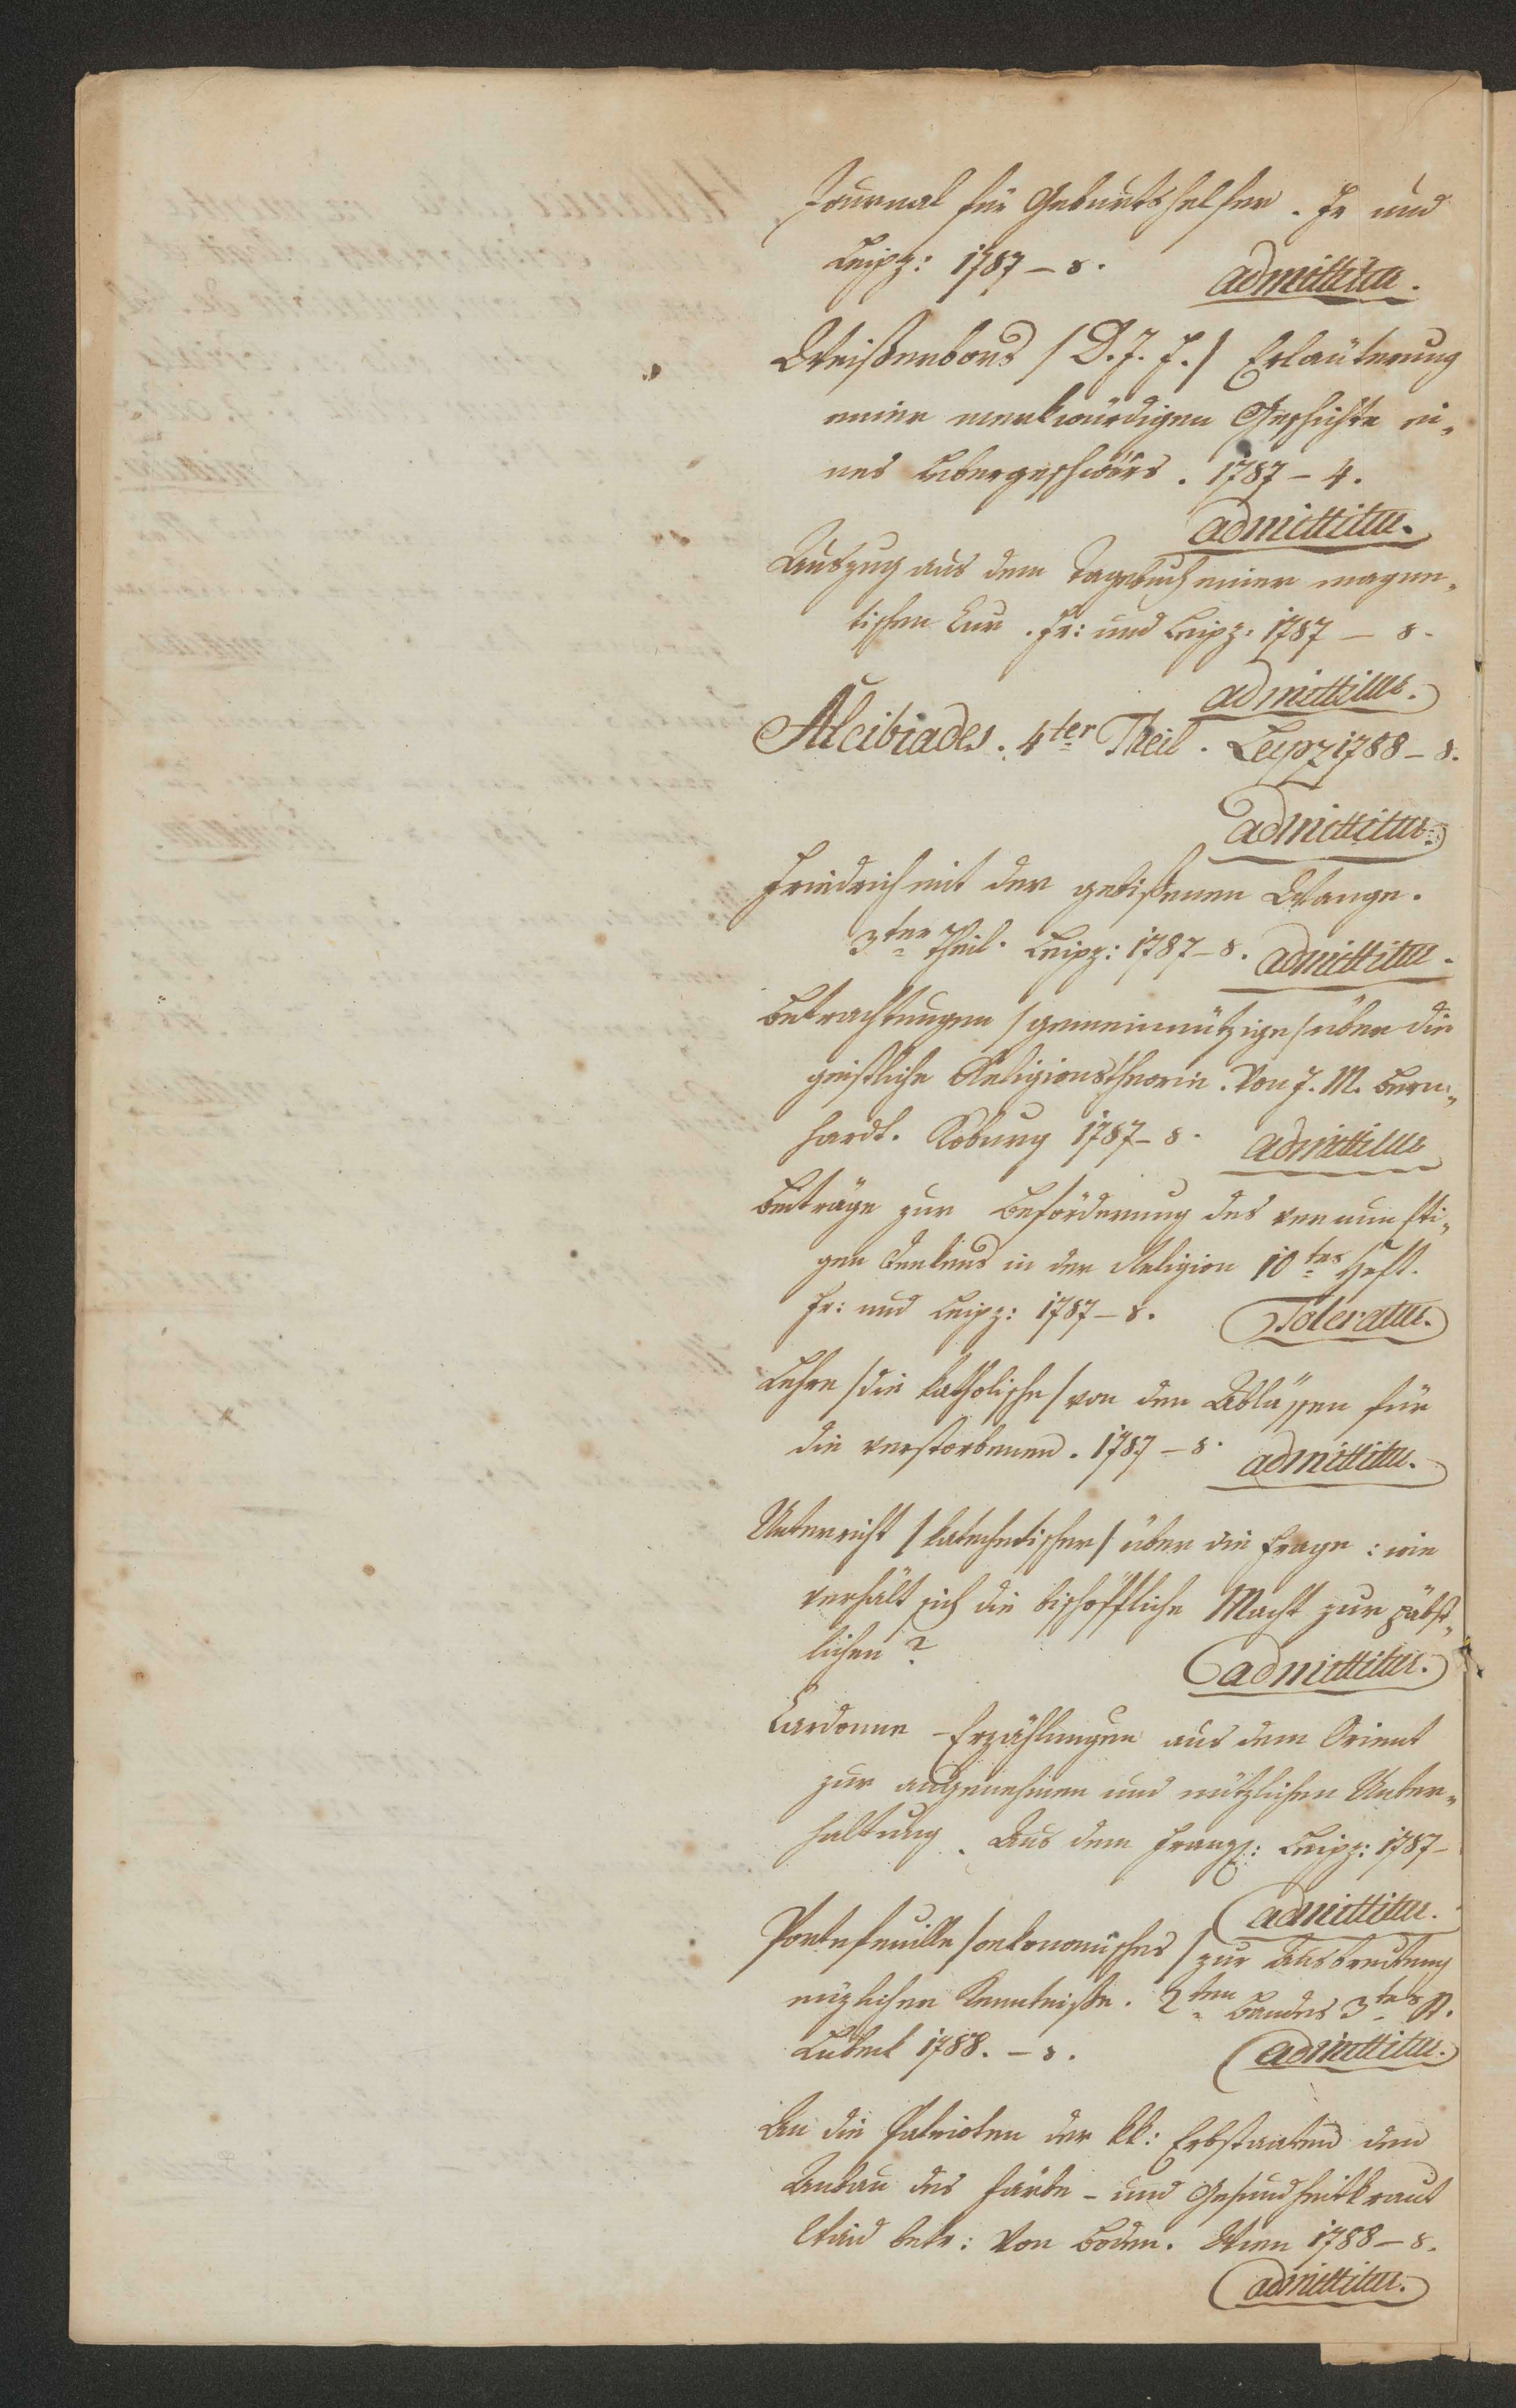 Journal für Geburtshelfer. Fr und
Leipz: 1787 – 8.
admittitur.
Weißenborns /D. J. F./ Erläuterung
einer merkwürdigen Geschichte ei„
nes Lebergeschwürs. 1787 – 4.
admittitur.
Auszug aus dem Tagebuch einer magne„
tischen Cur. Fr: und Leipz: 1787 – 8.
admittitur.
Alcibiades. 4ter Theil. Leipz 1788 – 8.
admittitur.
Friedrich mit der gebißenen Wange.
3ter Theil. Leipz: 1787 – 8. admittitur.
Betrachtungen /gemeinnützige/ über die
geistliche Religionstheorie. Von J. M. Bern„
hardt. Koburg 1787 – 8. admittitur
Beiträge zur Beförderung des vernünfti„
gen Denkens in der Religion 10tes Heft.
Fr: und Leipz: 1787 – 8. Toleratur.
Lehre /die katholische/ von den Ablässen für
die verstorbenen. 1787 – 8. admittitur.
Unterricht /katechetischer/ über die Frage: wie
verhält sich die bischöffliche Macht zur päbst„
lichen?
admittitur.
Cardonne – Erzählungen aus dem Orient
zur angenehmen und nützlichen Unter„
haltung. Aus dem Franz: Leipz: 1787 –
admittitur.
Portefeuille /oekonomisches/ zur Ausbreitung
nüzlicher Kenntniße. 2ten Bandes 3tes St.
Lübek 1788. – 8. admittitur.
An die Patrioten der kk: Erbstaaten den
Anbau des Färbe – und Gesundheitkraut
Waid betr: Von Boden. Wien 1788 – 8.
admittitur.